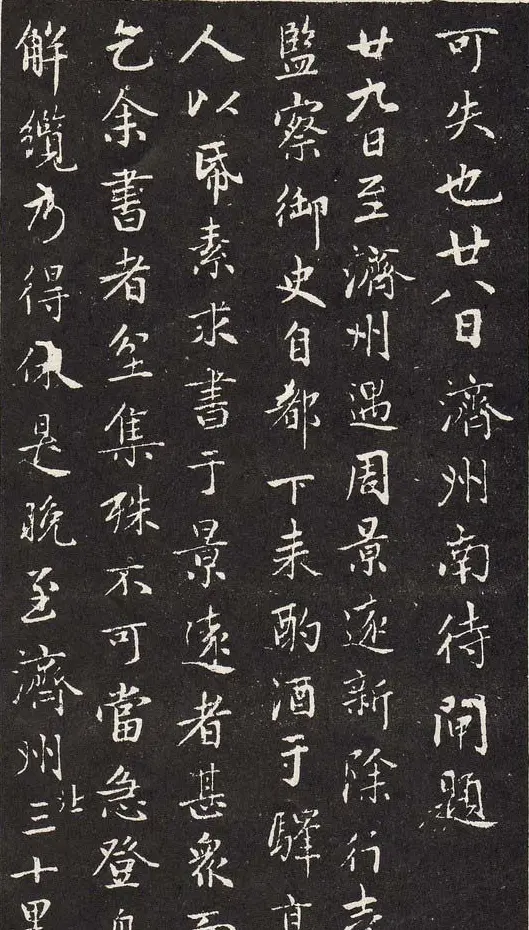 可失也廿八日濟州南待閘題
廿九日至濟州遇周景遠新除行
監察御史自都下来酌酒于驛
人以帋素求書于景遠者甚衆而
乞余書者坌集殊不可當急登
解纜乃得休是晚至濟州北三十里